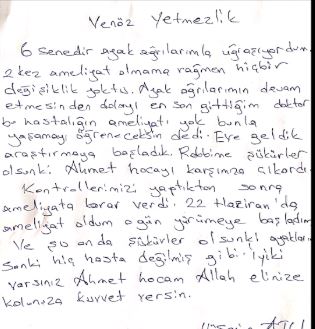 Venöz Yetmezlik
6 senedir ayak ağrılarımla uğraşıyordum.
2 kez ameliyat olmama rağmen hiçbir
değişiklik yoktu. Ayak ağrılarımın devam
etmesinden dolayı en son gittiğim doktor
bu hastalığın ameliyatı yok bunla
yaşamayı öğreneceksin dedi. Eve geldik
araştırmaya başladık. Rabbime şükürler
olsunki Ahmet hocayı karşımıza çıkardı.
Kontrollerimizi yaptıktan sonra
ameliyata karar verdi. 22 Haziran'da
ameliyat oldum o gün yürümeye başladım
Ve şu anda şükürler olsunki ayaklarım
Sanki hiç hasta değilmiş gibi. iyiki
varsınız Ahmet hocam Allah elinize
kolunuza kuvvet versin.